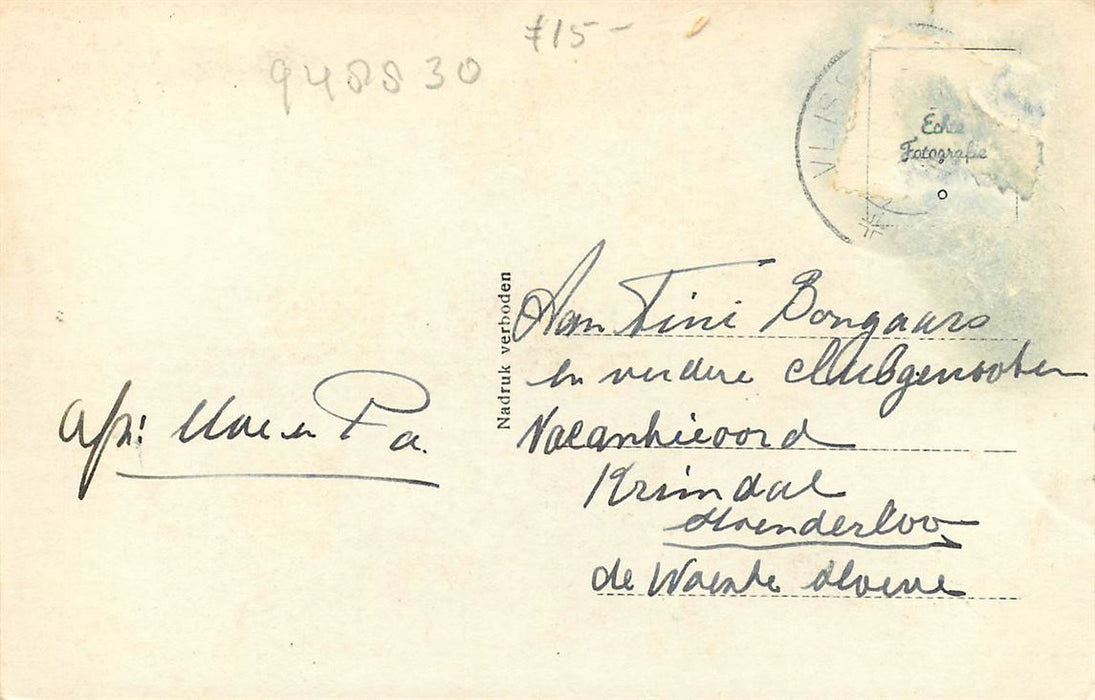 f15-
948830
VLISS
Echte
Fotografie
Nadruk verboden
Aan Tini Bongaars
en verdere clubgenooten
Vacantieoord
Krimdal
Hoenderloo
de Woeste Hoeve
Afz: Moe en Pa.